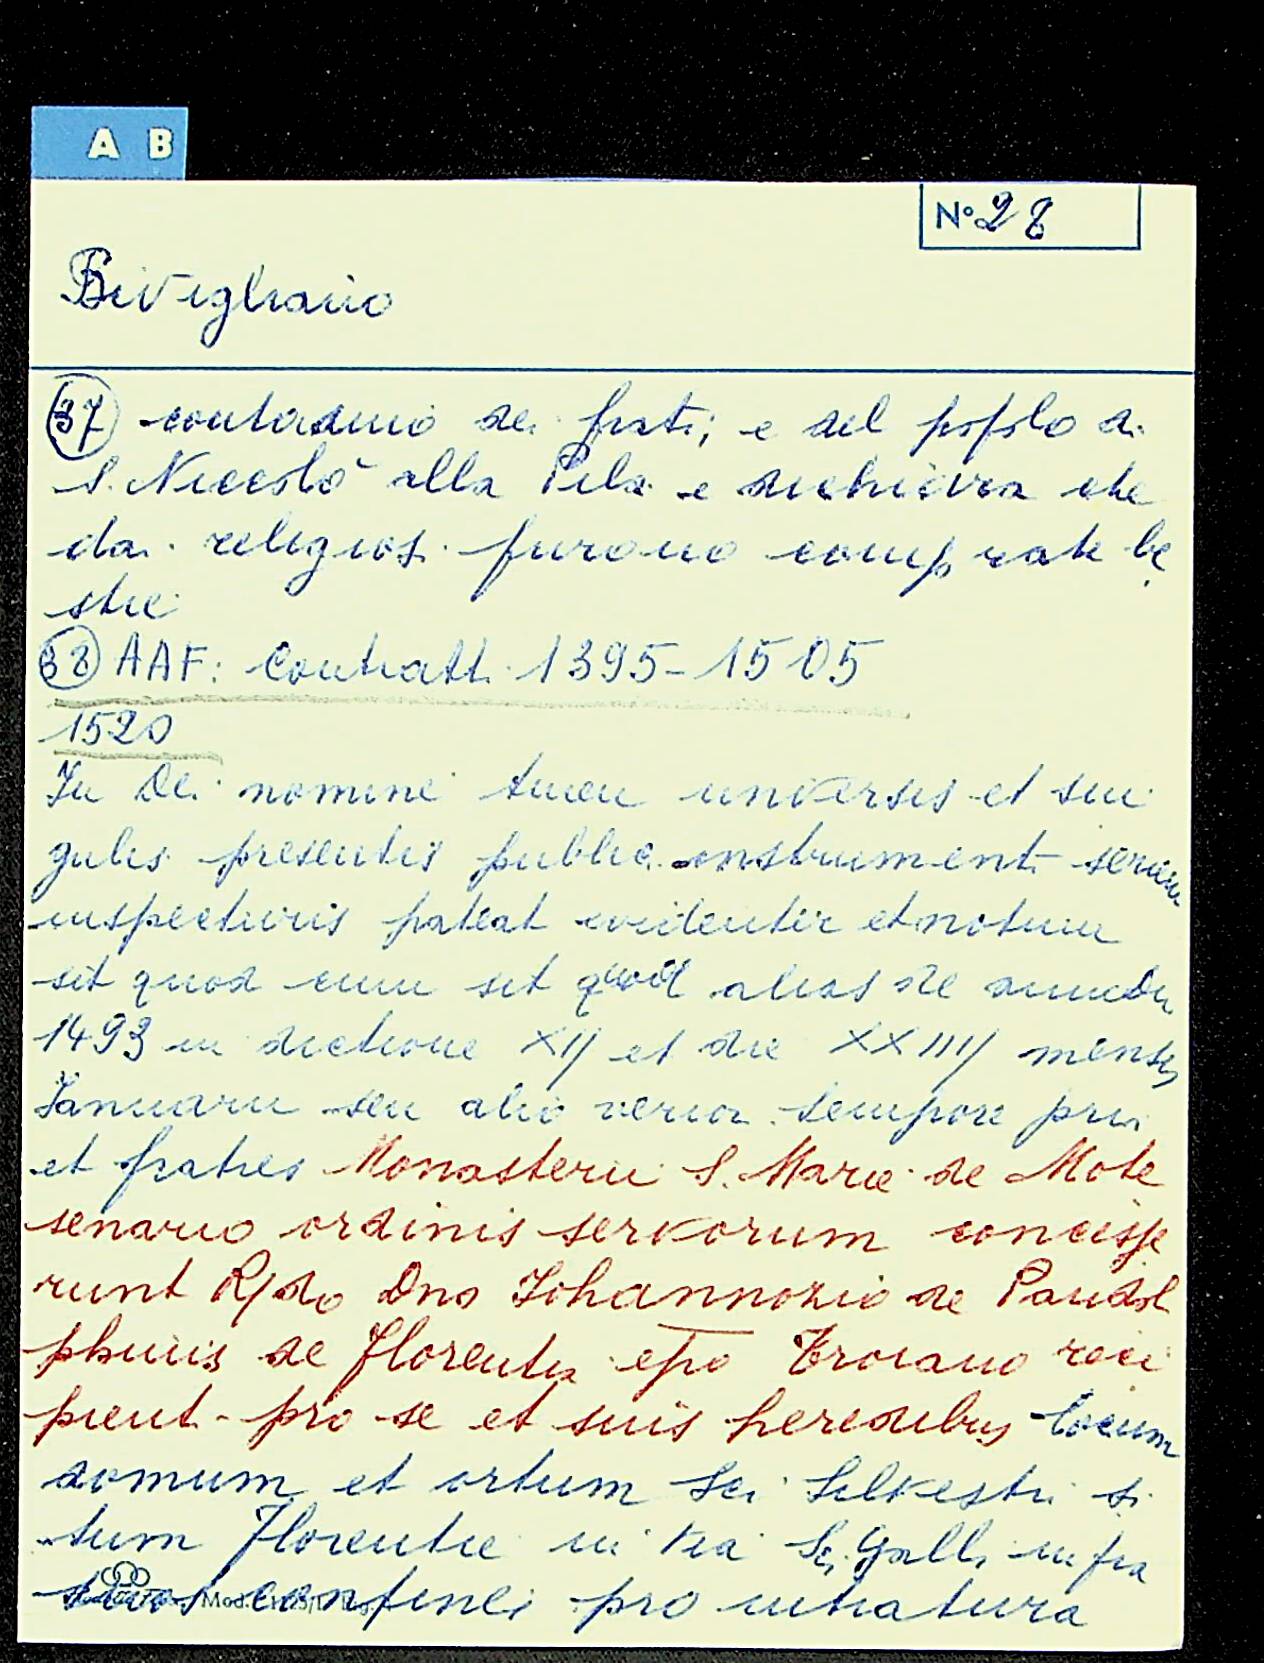 A B
N° 28
Bivigliano
37 contadino dei frati; e del popolo di
S. Niccolò alla Pila e dichiara che
dai religiosi furono comprate be
stie
38 AAF: Contratti 1395-1505
1520
In Dei nomine amen universis et sin
gulis presentis publici instrumenti seriem
inspecturis pateat evidenter et notum
sit quod cum sit quod alias de anno Dni
1493 indictione XII et die XXIIII mensis
Januarii seu alio veriori tempore prior
et fratres Monasterii S. Marie de Mote
senario ordinis servorum concesse
runt R/do Dno Johannozio de Pandol
phinis de Florentia epo Troiano reci
pient. pro se et suis heredibus locum
domum et ortum Sci Silvestri si
tum Florentie in via Sci Galli infra
suos confines pro intratura
Mod.